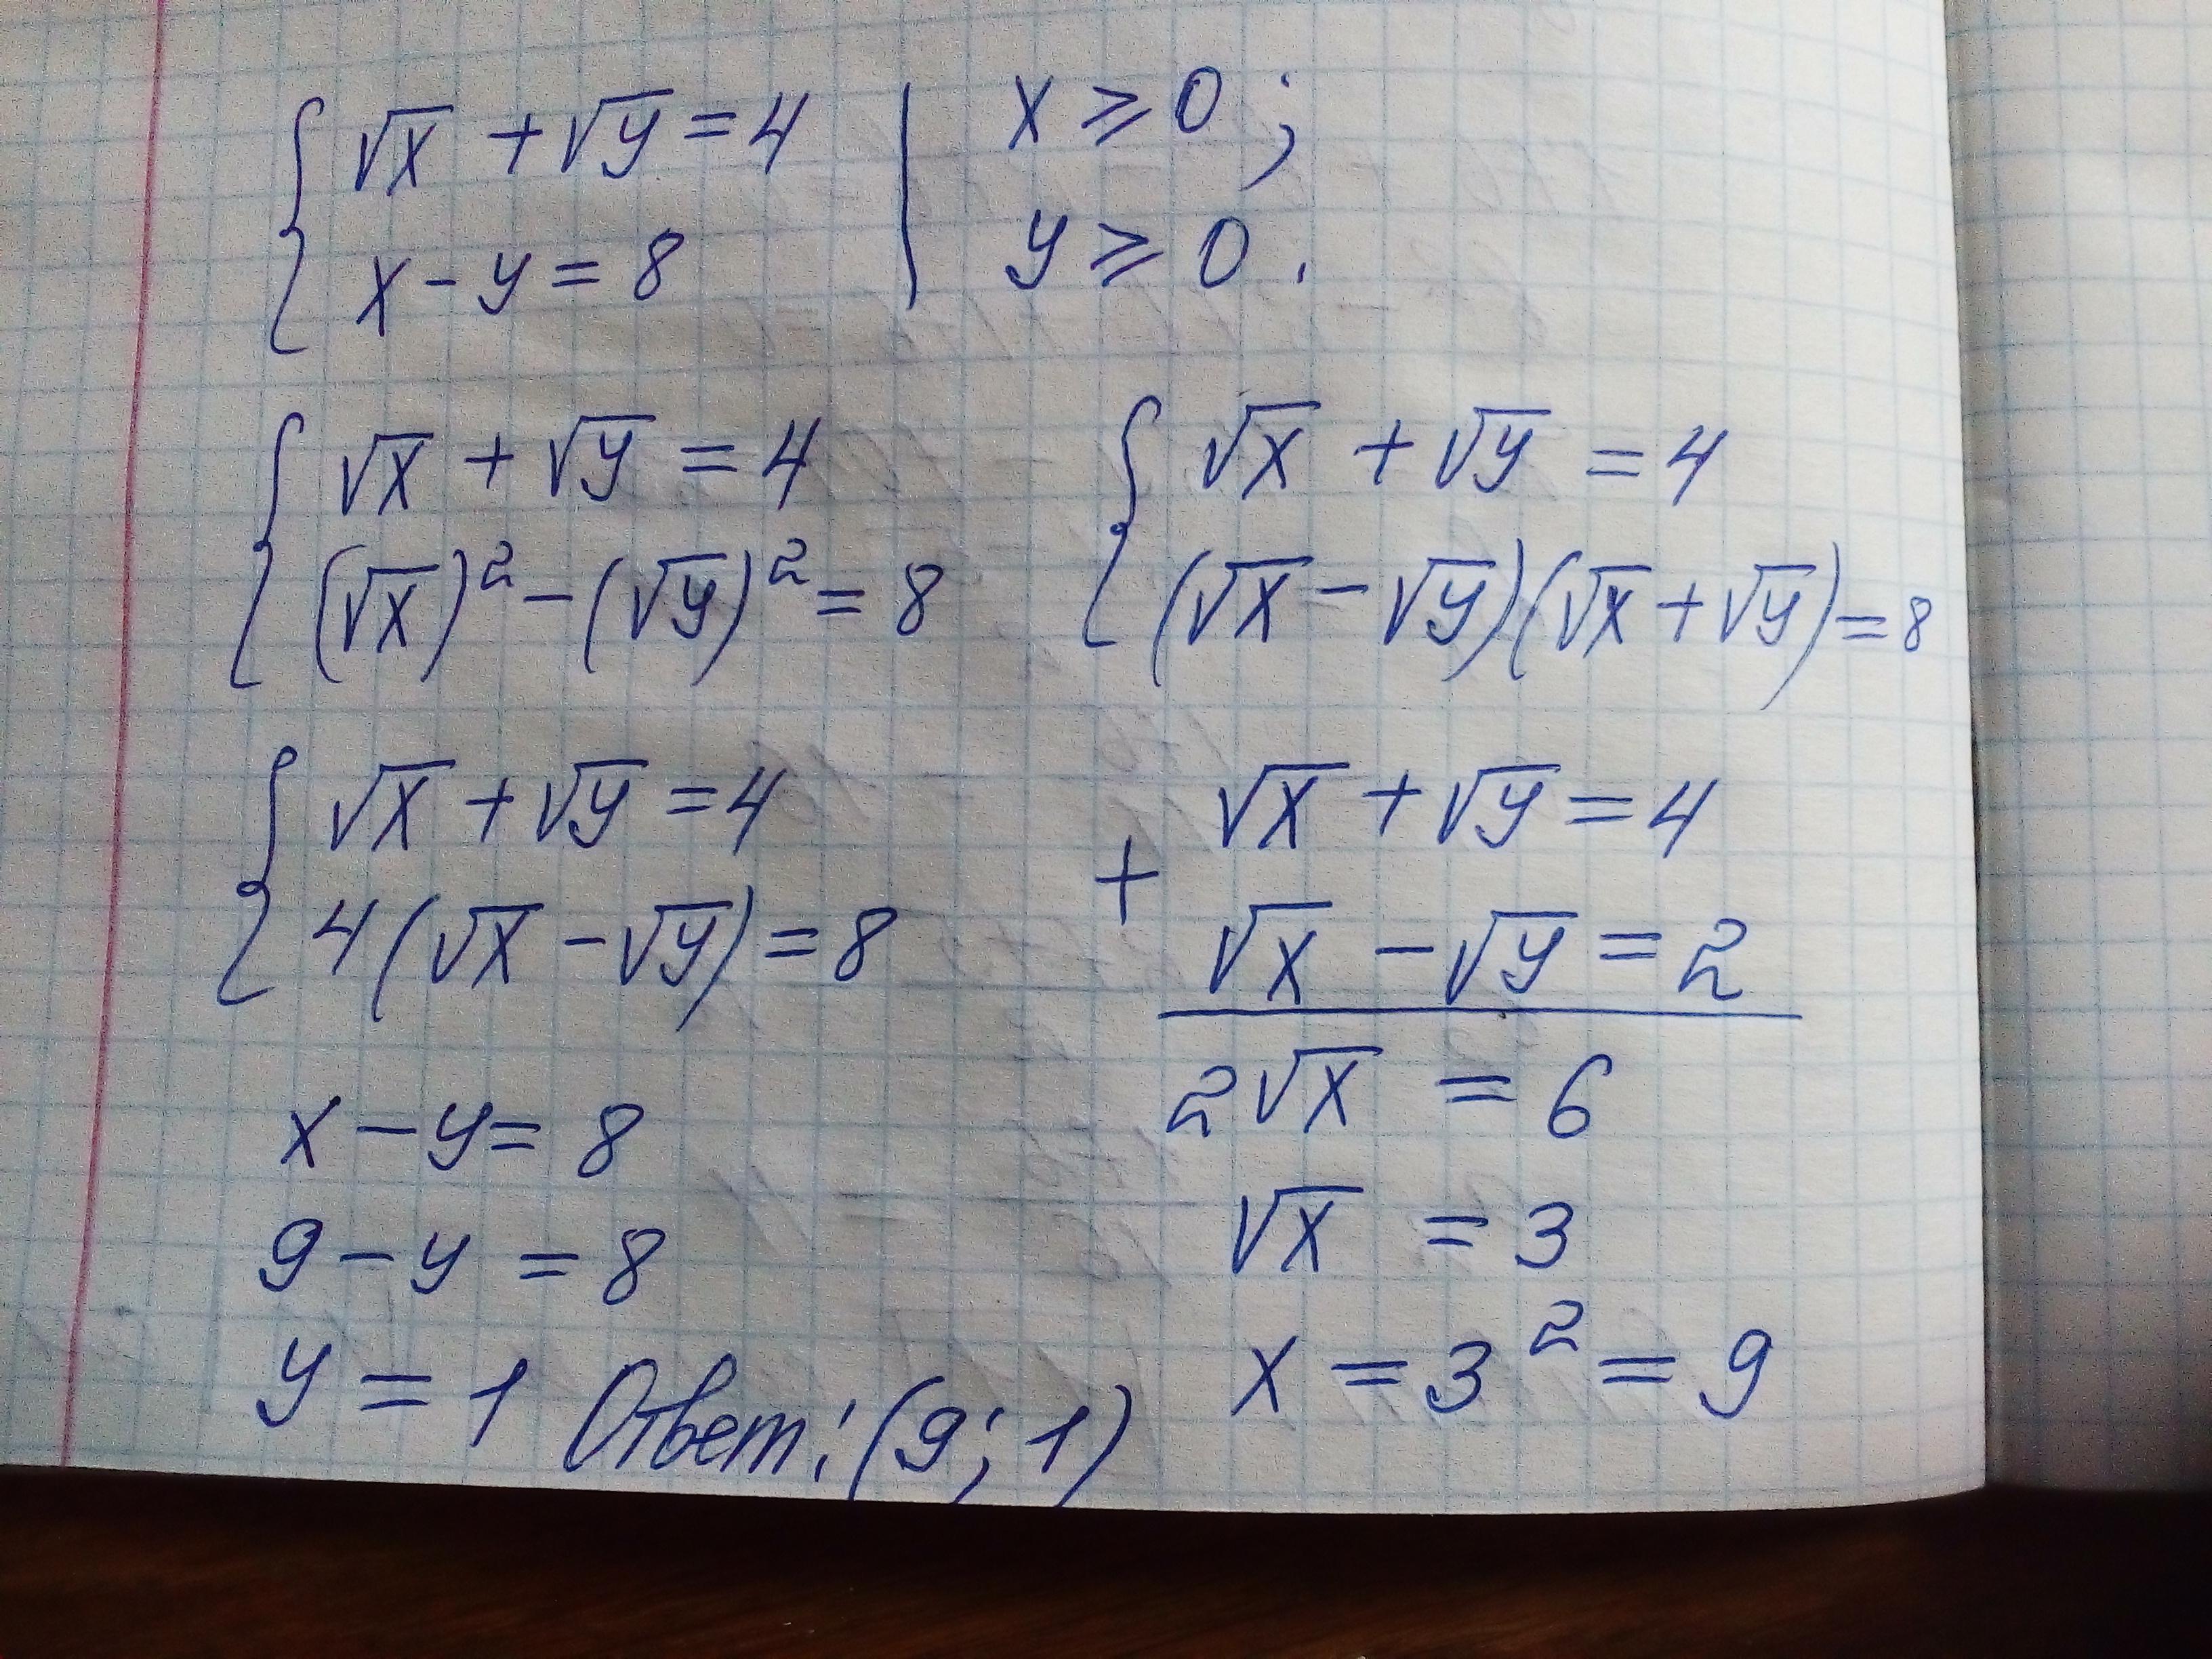 √x + √y = 4 | x ⩾ 0;
x - y = 8 | y ⩾ 0.
√x + √y = 4
(√x)² - (√y)² = 8
√x + √y = 4
(√x - √y)(√x + √y) = 8
√x + √y = 4
4(√x - √y) = 8
+ √x + √y = 4
√x - √y = 2
2√x = 6
√x = 3
x = 3² = 9
x - y = 8
9 - y = 8
y = 1 Ответ: (9; 1)